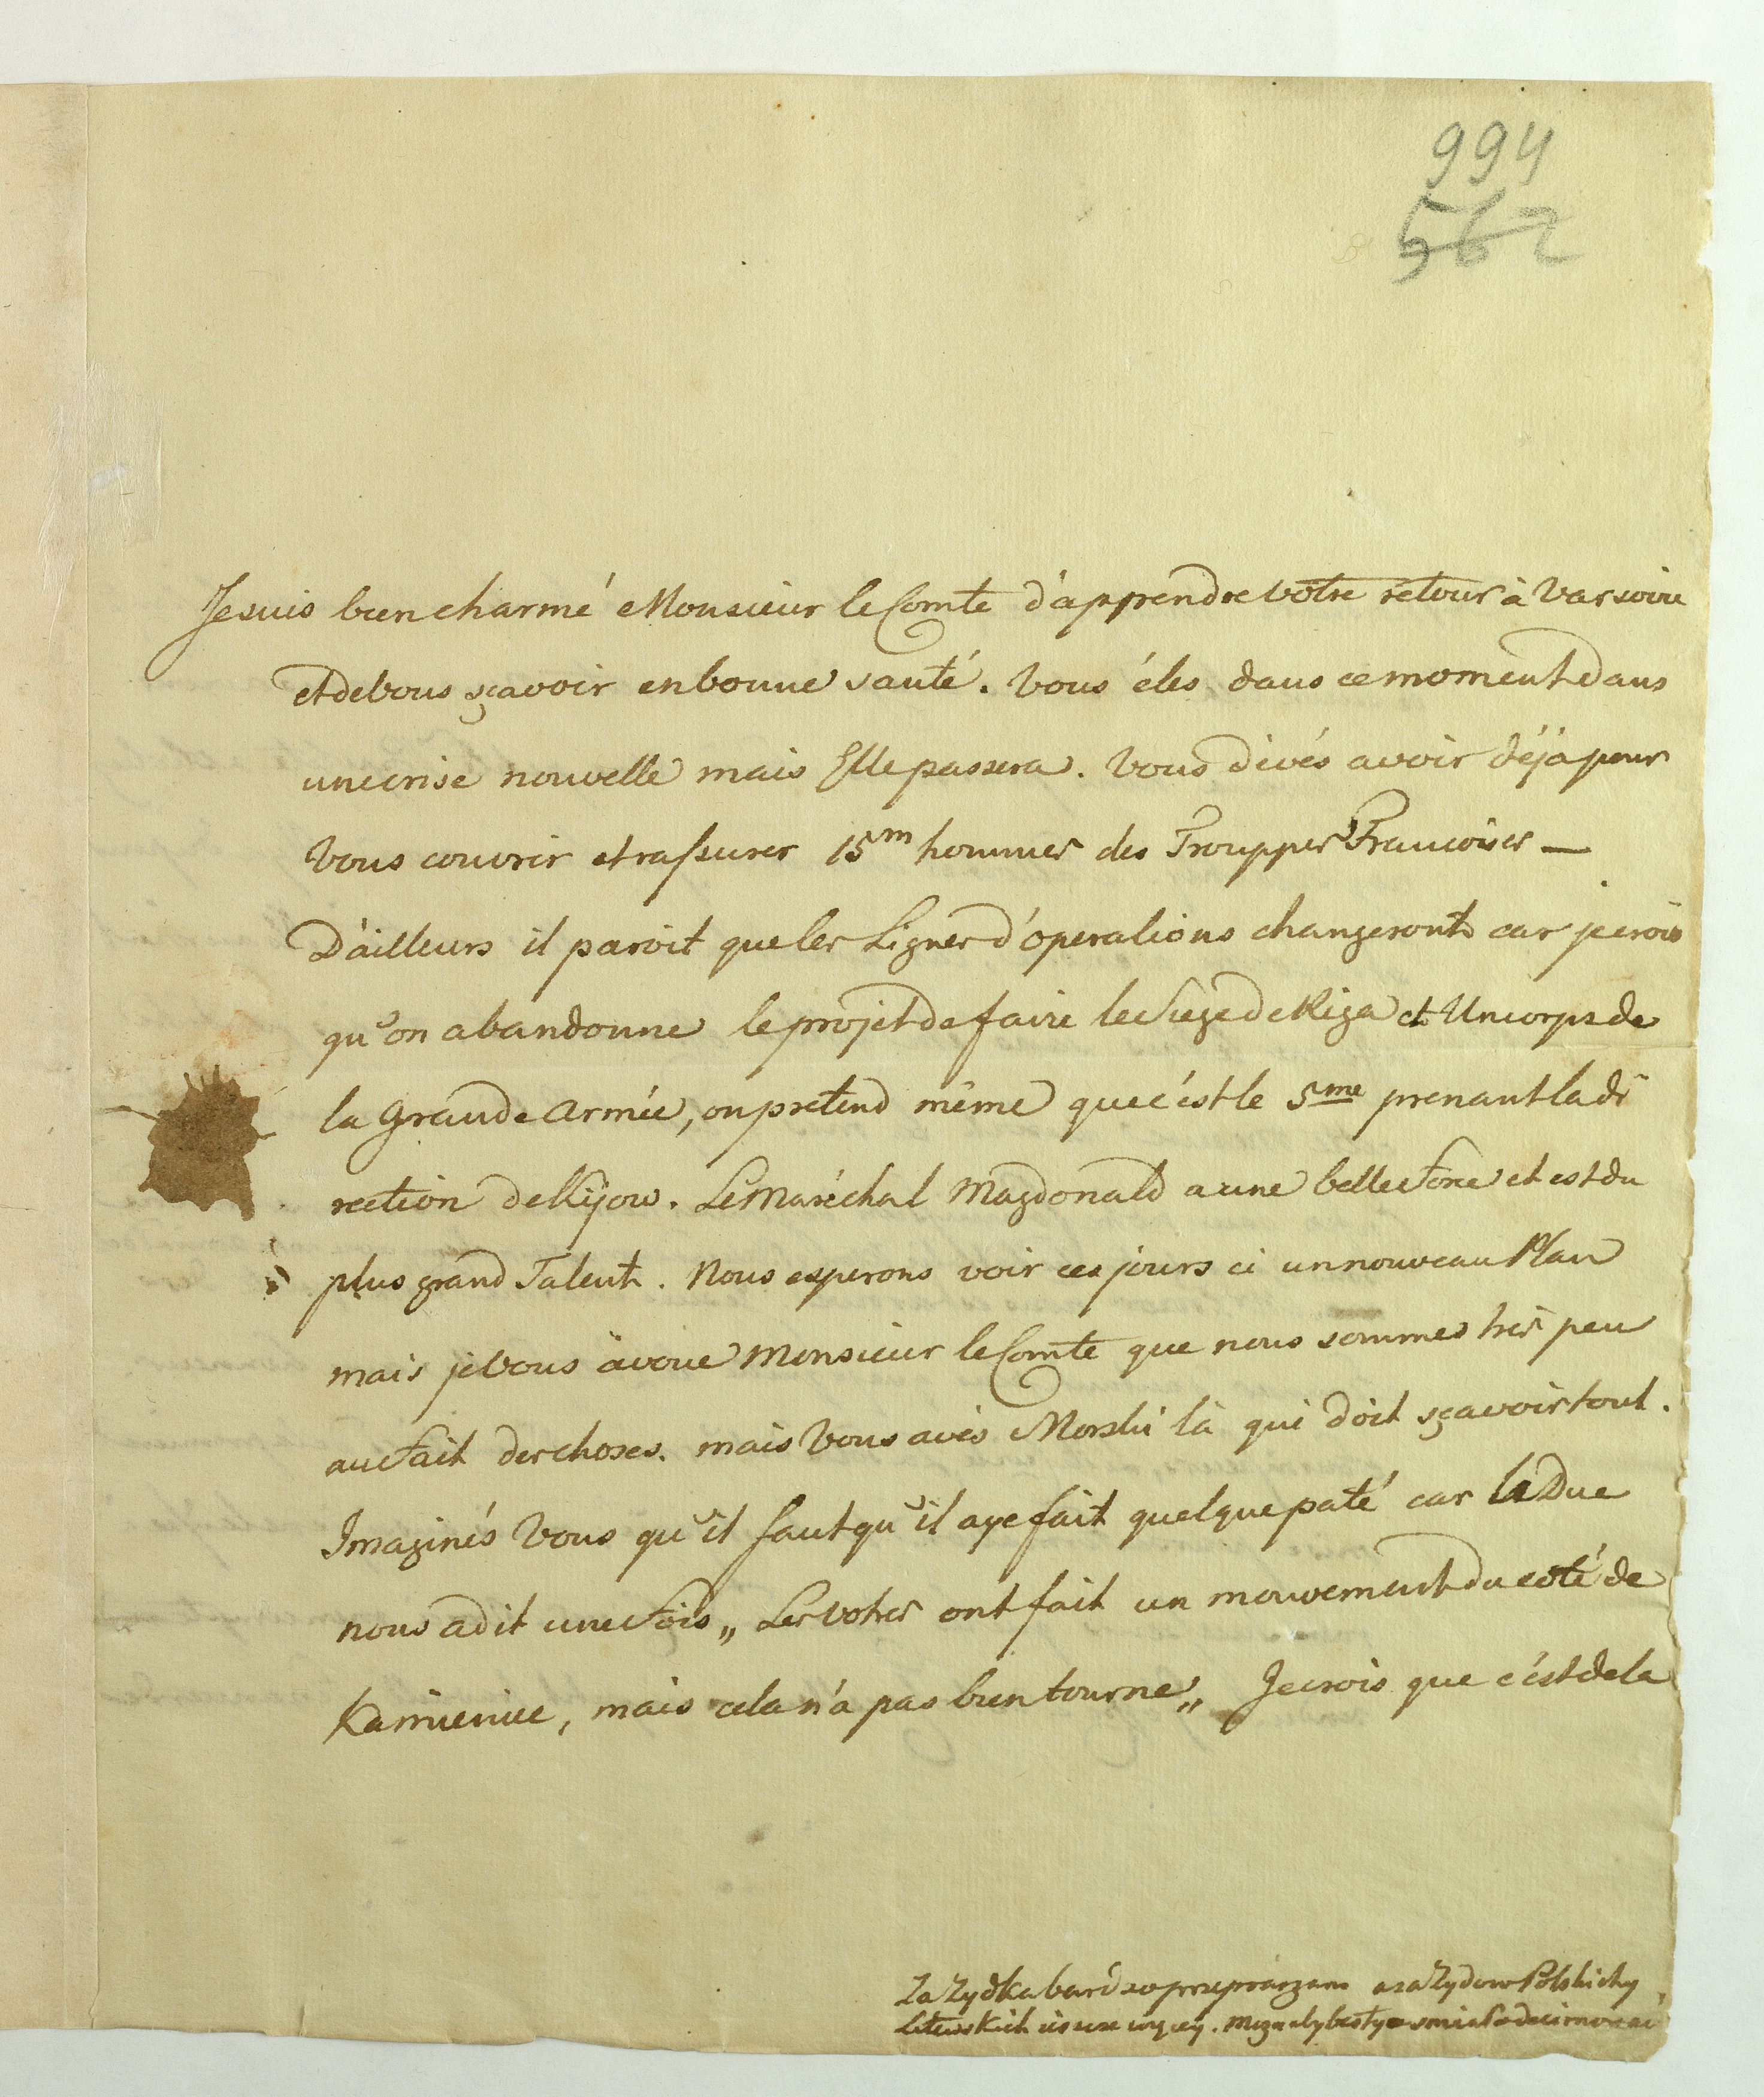 994
562
Je suis bien charmé Monsieur le Comte d'apprendre votre retour à Varsovie
et de vous sçavoir en bonne santé. Vous étes dans ce moment dans
une crise nouvelle mais Elle passera. Vous dévés avoir déja pour
Vous couvrir et rassurer 15m hommes des Trouppes Francoises —
D'ailleurs il paroit que les Lignes d'operations changeront car je crois
qu'on abandonne le projet de faire le Siege de Riga et Un corps de
la Grande Armée, on pretend même que c'ést le 5me prenant la di
rection de Kijow. Le Maréchal Magdonald a une belle Force et est du
plus grand Talent. Nous esperons voir ces jours ci un nouveau Plan
mais je vous avoue Monsieur le Comte que nous sommes très peu
au Fait des choses. mais Vous avés Morski là qui doit sçavoir tout.
Imaginés Vous qu'il faut qu'il aye fait quelque paté car le Duc
nous a dit une Fois „ Les votres ont fait un mouvement du coté de
Kamieniec, mais cela n'a pas bien tourne „ Je crois que c'ést de la
Za Zydka bardzo przepraszam a za Zydow Polskich y
Litewskich ieszcze więcey.